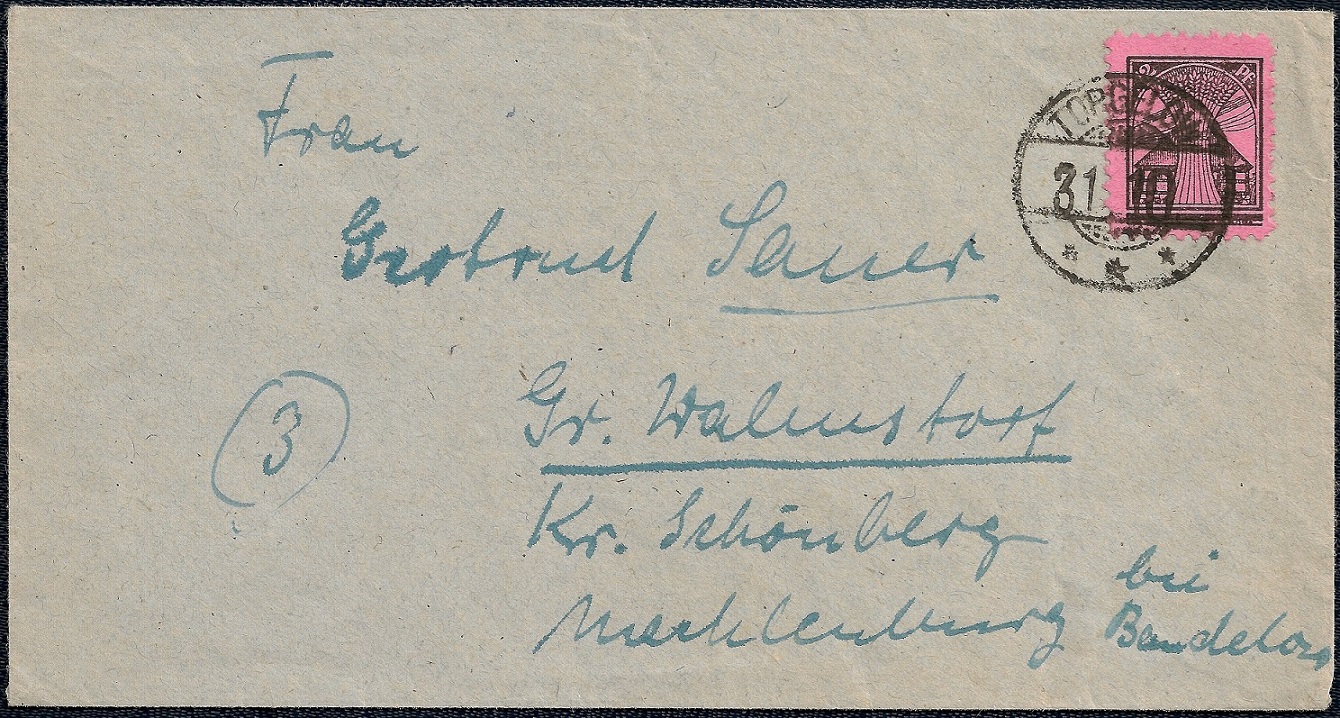 Frau
Gertrud Sauer
Gr. Walmstorf
Kr. Schönberg
Mecklenburg
bei
3
PF
TORGELOW
31. 10
* * *